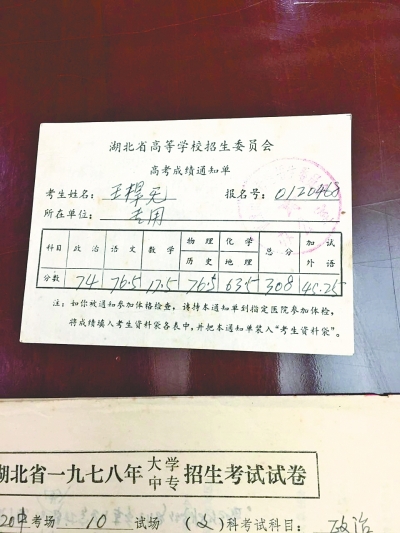 湖北省高等学校招生委员会
高考成绩通知单
考生姓名：王择无 报名号：0120468
所在单位：专用
科目 政治 语文 数学 物理 化学 总分 加试
历史 地理 外语
分数 74 76.5 17.5 76.5 63.5 308 40.25
注：如你被通知参加体格检查，请持本通知单到指定医院参加体检，
将成绩填入考生资料袋各表中，并把本通知单装入“考生资料袋”。
湖北省一九七八年大学中专招生考试试卷
考场 10 试场 (文)科考试科目：政治